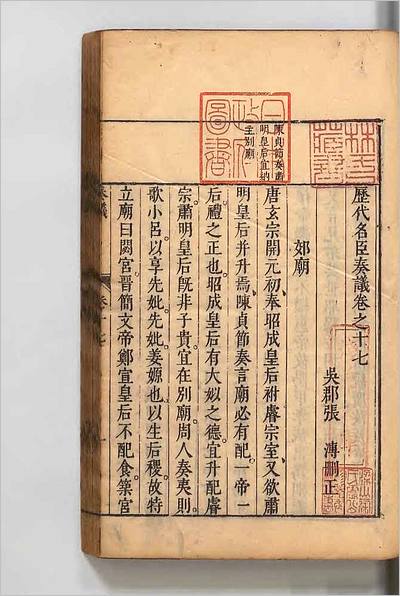 歷代名臣奏議卷之十七
吳郡張 溥刪正
郊廟
陳貞節奏肅
明皇后宜納
主別廟
唐玄宗開元初奉昭成皇后祔睿宗室又欲肅
明皇后并升焉陳貞節奏言廟必有配一帝一
后禮之正也昭成皇后有大姒之德宜升配睿
宗肅明皇后既非子貴宜在別廟周人奏夷則
歌小呂以享先妣先妣姜嫄也以生后稷故特
立廟曰閟宮晉簡文帝鄭宣皇后不配食築宮